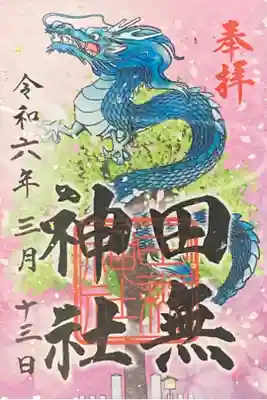 奉拝
田無
神社
令和六年 三月 十三日